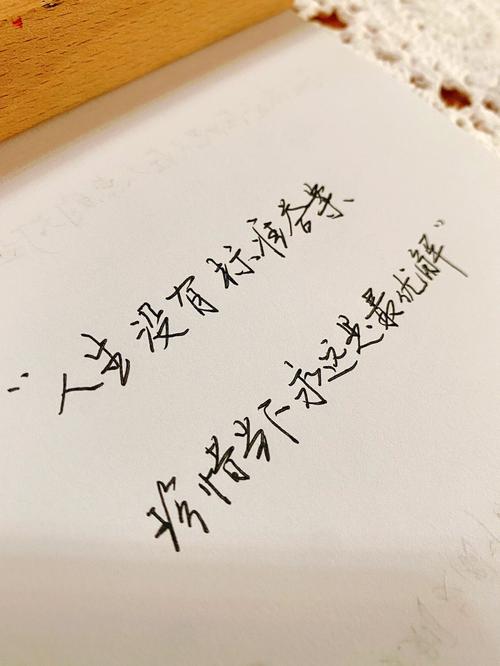 “人生没有标准答案、
珍惜当下永远是最优解”